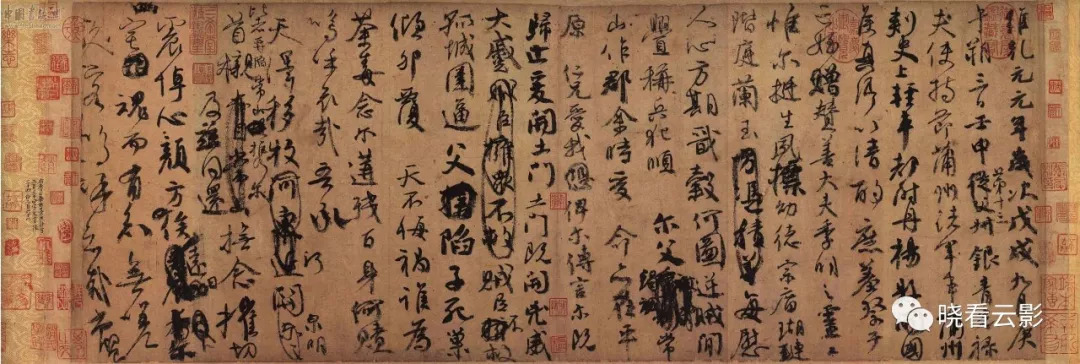 維乾元元年歲次戊戌九月庚
午朔三日壬申第十三從父州銀青光祿
夫使持節蒲州諸軍事蒲州
刺史上輕車都尉丹楊縣開國
侯真卿以清酌庶羞祭于
亡姪贈贊善大夫季明之靈
惟爾挺生夙標幼德宗廟瑚璉
階庭蘭玉方憑積善每慰
人心方期戩穀何圖逆賊間
釁稱兵犯順 爾父竭誠常
山作郡余時受 命亦在平
原仁兄愛我俾爾傳言爾既
歸止爰開土門土門既開兇威
大蹙賊臣擁眾不救賊臣不救
孤城圍逼父陷子死巢
傾卵覆 天不悔禍誰為
荼毒念爾遘殘百身何贖
嗚呼哀哉 吾承
天澤移牧河東近河關 泉明
比者再陷常山攜爾
首櫬及茲同還 撫念摧切
震悼心顏方俟遠日
宅魂而有知無嗟
久客嗚呼哀哉尚饗
晓看云影